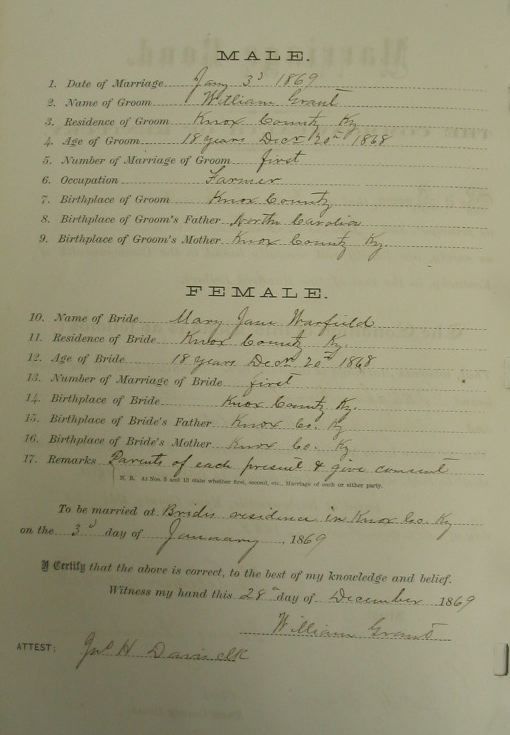 MALE.
1. Date of Marriage Jany 3d 1869
2. Name of Groom William Grant
3. Residence of Groom Knox County Ky
4. Age of Groom 18 years Decr 20th 1868
5. Number of Marriage of Groom first
6. Occupation Farmer
7. Birthplace of Groom Knox County
8. Birthplace of Groom's Father North Carolia
9. Birthplace of Groom's Mother Knox County Ky.
FEMALE.
10. Name of Bride Mary Jane Warfield
11. Residence of Bride Knox County Ky.
12. Age of Bride 18 years Decr 20th 1868
13. Number of Marriage of Bride first
14. Birthplace of Bride Knox County Ky.
15. Birthplace of Bride's Father Knox Co. Ky
16. Birthplace of Bride's Mother Knox Co. Ky
17. Remarks Parents of each present & give consent
N. B. At Nos. 5 and 13 state whether first, second, etc., Marriage of each or either party.
To be married at Brides residence in Knox Co. Ky
on the 3d day of January, 1869
I Certify that the above is correct, to the best of my knowledge and belief.
Witness my hand this 28th day of December 1869
William Grant
ATTEST: Jno H Davis clk